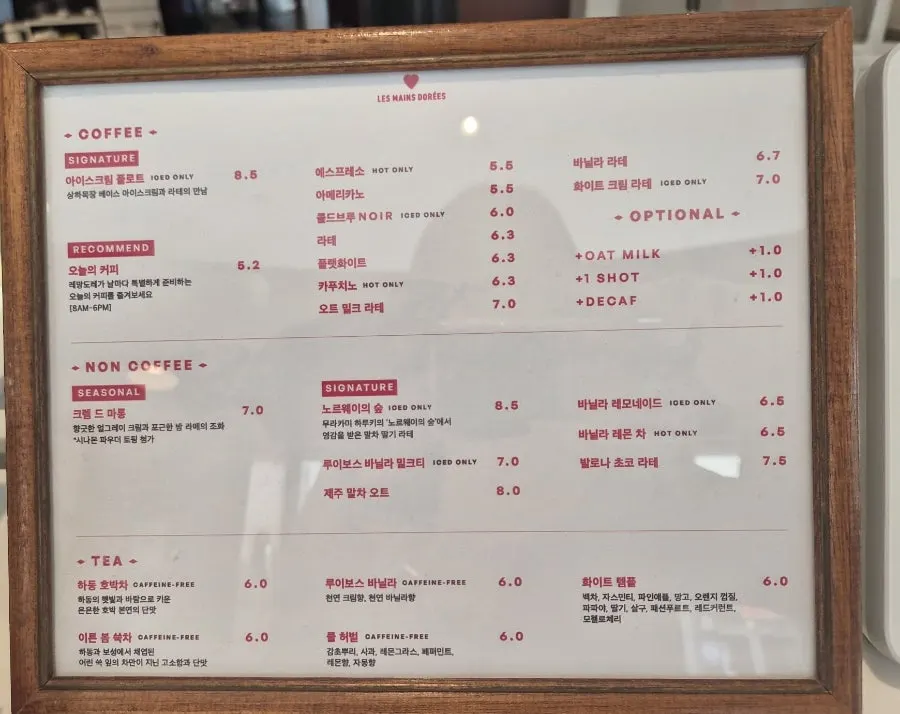 LES MAINS DORÉES
COFFEE
SIGNATURE
아이스크림 플로트 ICED ONLY 8.5
상하목장 베이스 아이스크림과 라테의 만남
RECOMMEND
오늘의 커피 5.2
레망도레가 날마다 특별하게 준비하는
오늘의 커피를 즐겨보세요
[8AM-6PM]
에스프레소 HOT ONLY 5.5
아메리카노 5.5
콜드브루 NOIR ICED ONLY 6.0
라테 6.3
플랫화이트 6.3
카푸치노 HOT ONLY 6.3
오트 밀크 라테 7.0
바닐라 라테 6.7
화이트 크림 라테 ICED ONLY 7.0
OPTIONAL
+OAT MILK +1.0
+1 SHOT +1.0
+DECAF +1.0
NON COFFEE
SEASONAL
크렘 드 마롱 7.0
향긋한 얼그레이 크림과 포근한 밤 라떼의 조화
*시나몬 파우더 토핑 첨가
SIGNATURE
노르웨이의 숲 ICED ONLY 8.5
무라카미 하루키의 '노르웨이의 숲'에서
영감을 받은 말차 딸기 라테
루이보스 바닐라 밀크티 ICED ONLY 7.0
제주 말차 오트 8.0
바닐라 레모네이드 ICED ONLY 6.5
바닐라 레몬 차 HOT ONLY 6.5
발로나 초코 라테 7.5
TEA
하동 호박차 CAFFEINE-FREE 6.0
하동의 햇빛과 바람으로 키운
은은한 호박 본연의 단맛
이른 봄 쑥차 CAFFEINE-FREE 6.0
하동과 보성에서 채엽된
어린 쑥 잎의 차만이 지닌 고소함과 단맛
루이보스 바닐라 CAFFEINE-FREE 6.0
천연 크림향, 천연 바닐라향
쿨 허벌 CAFFEINE-FREE 6.0
감초뿌리, 사과, 레몬그라스, 페퍼민트,
레몬향, 자몽향
화이트 템플 6.0
백차, 자스민티, 파인애플, 망고, 오렌지 껍질,
파파야, 딸기, 살구, 패션푸르트, 레드커런트,
모렐로체리